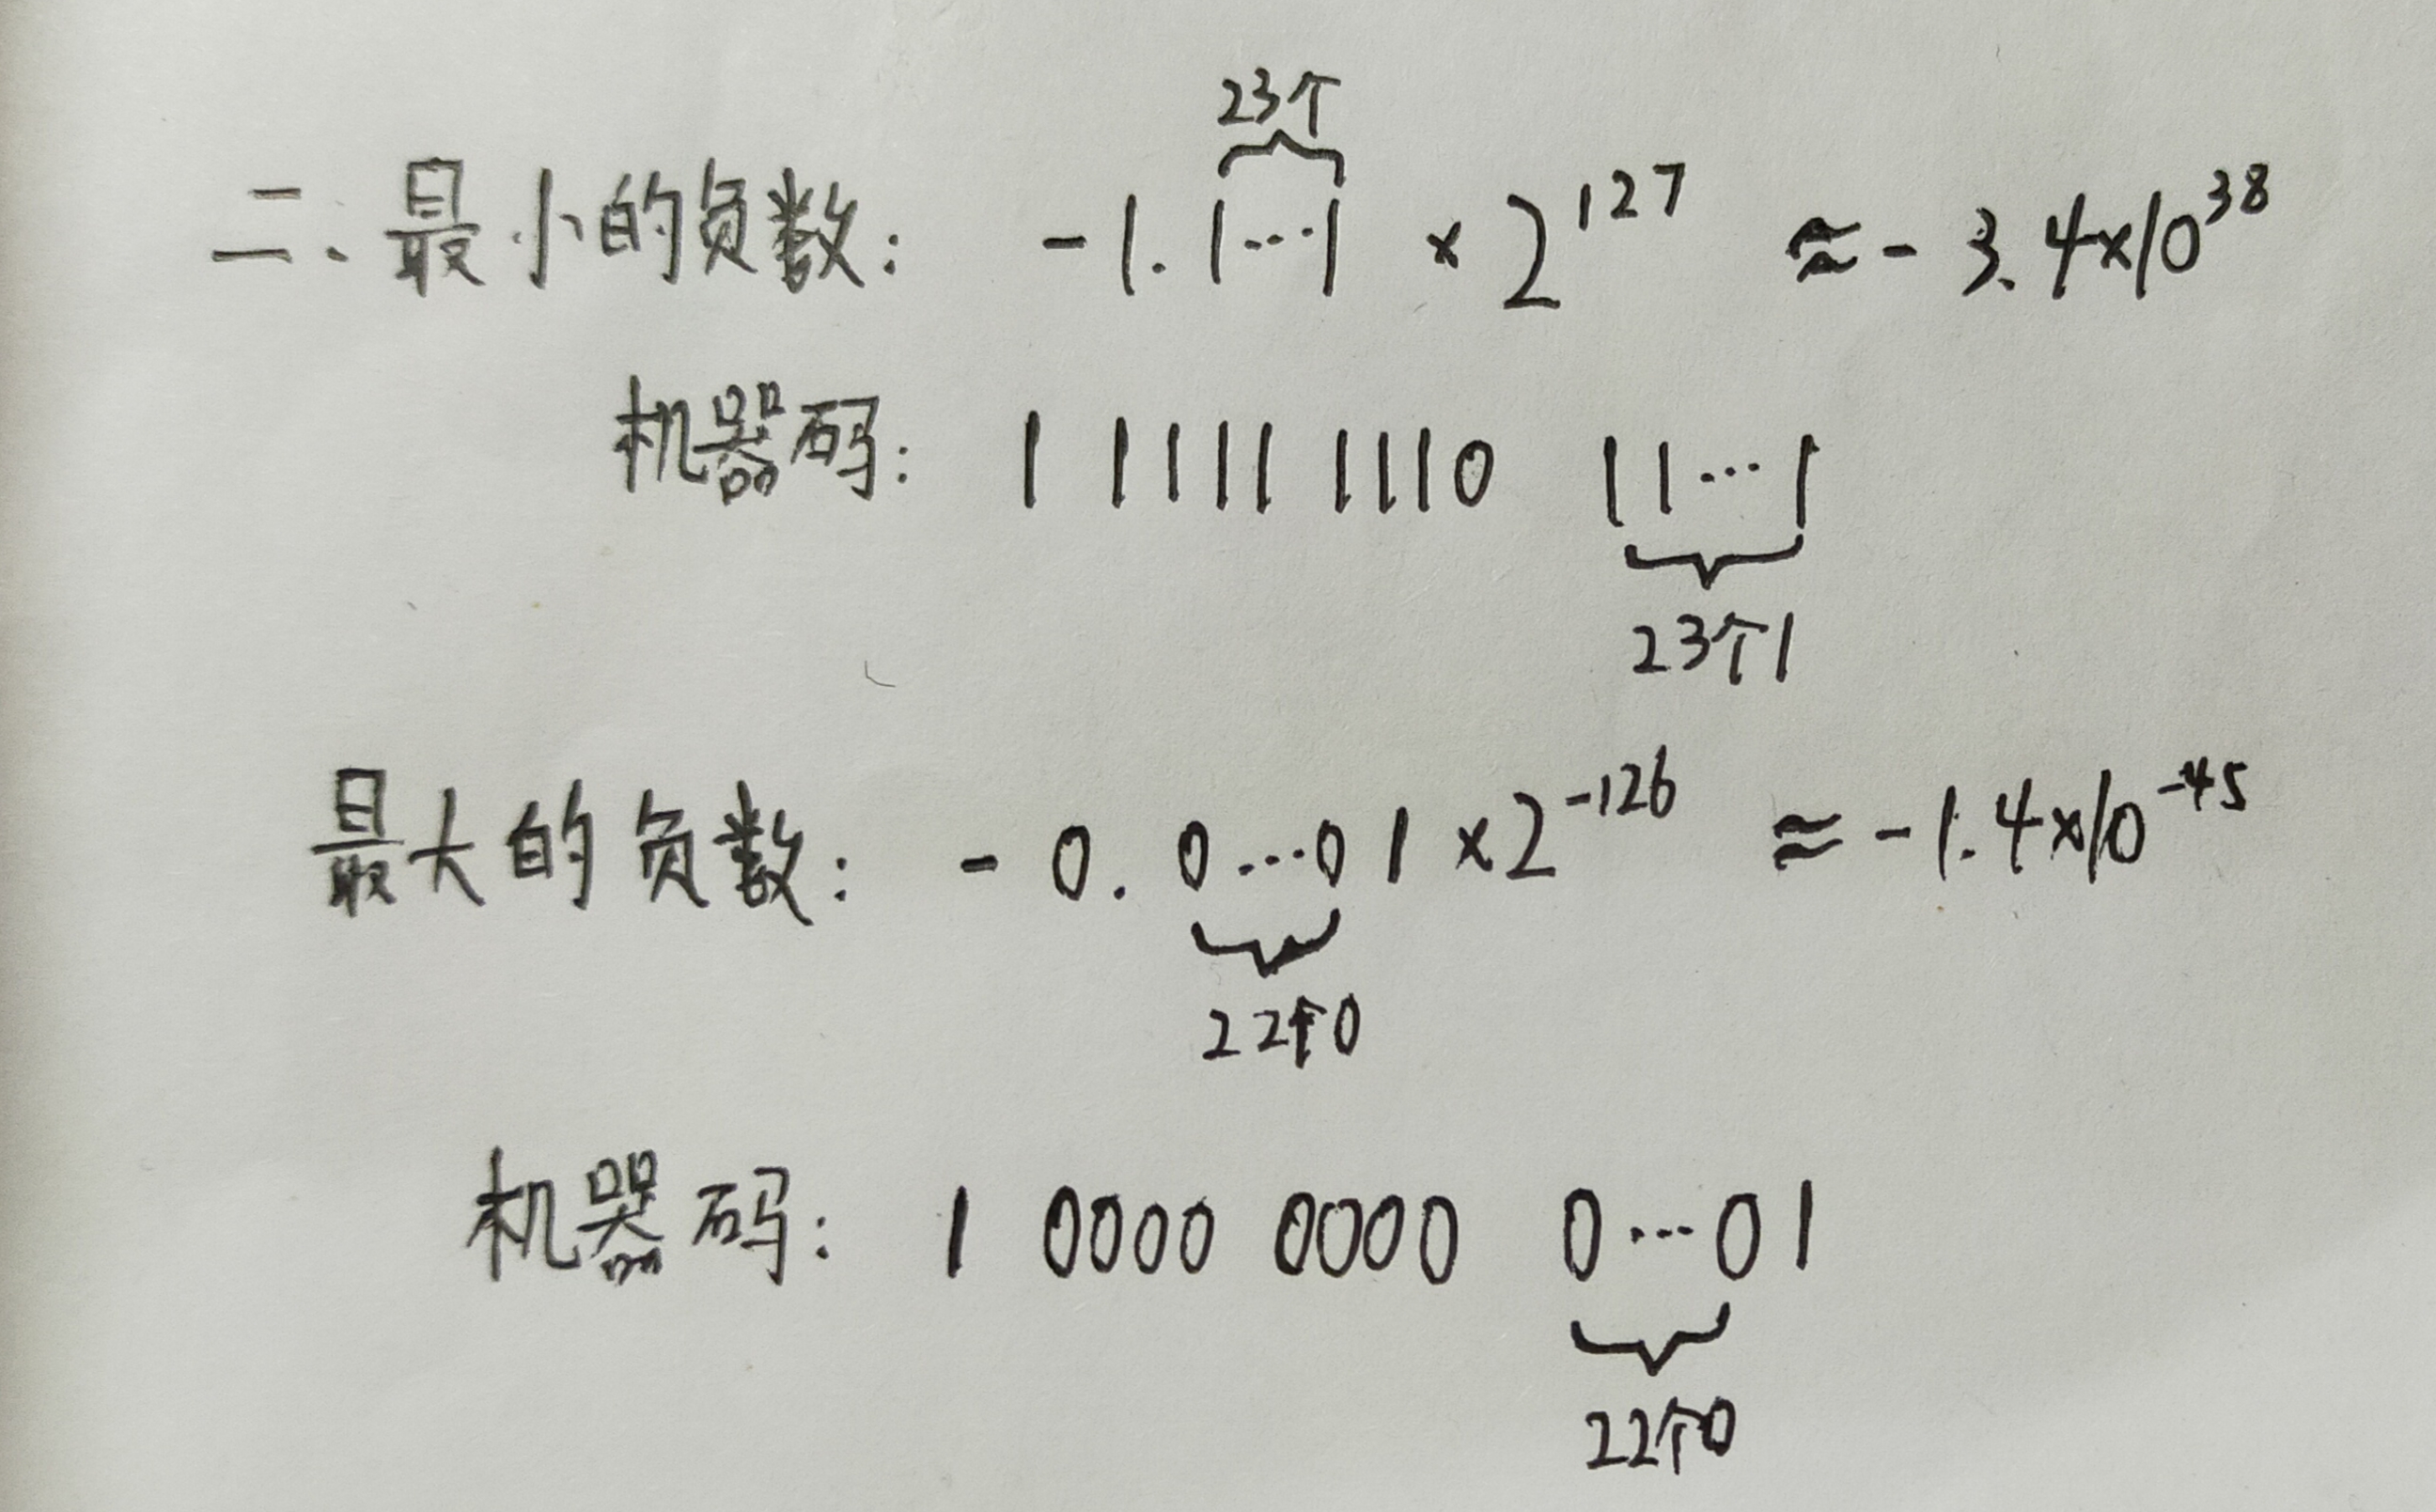 23个
二、最小的负数: -1.1…1 × 2^127 ≈ -3.4×10^38
机器码: 1 1111 1110 11…1
23个1
最大的负数: -0.0…01 ×2^-126 ≈ -1.4×10^-45
22个0
机器码: 1 0000 0000 0…01
22个0